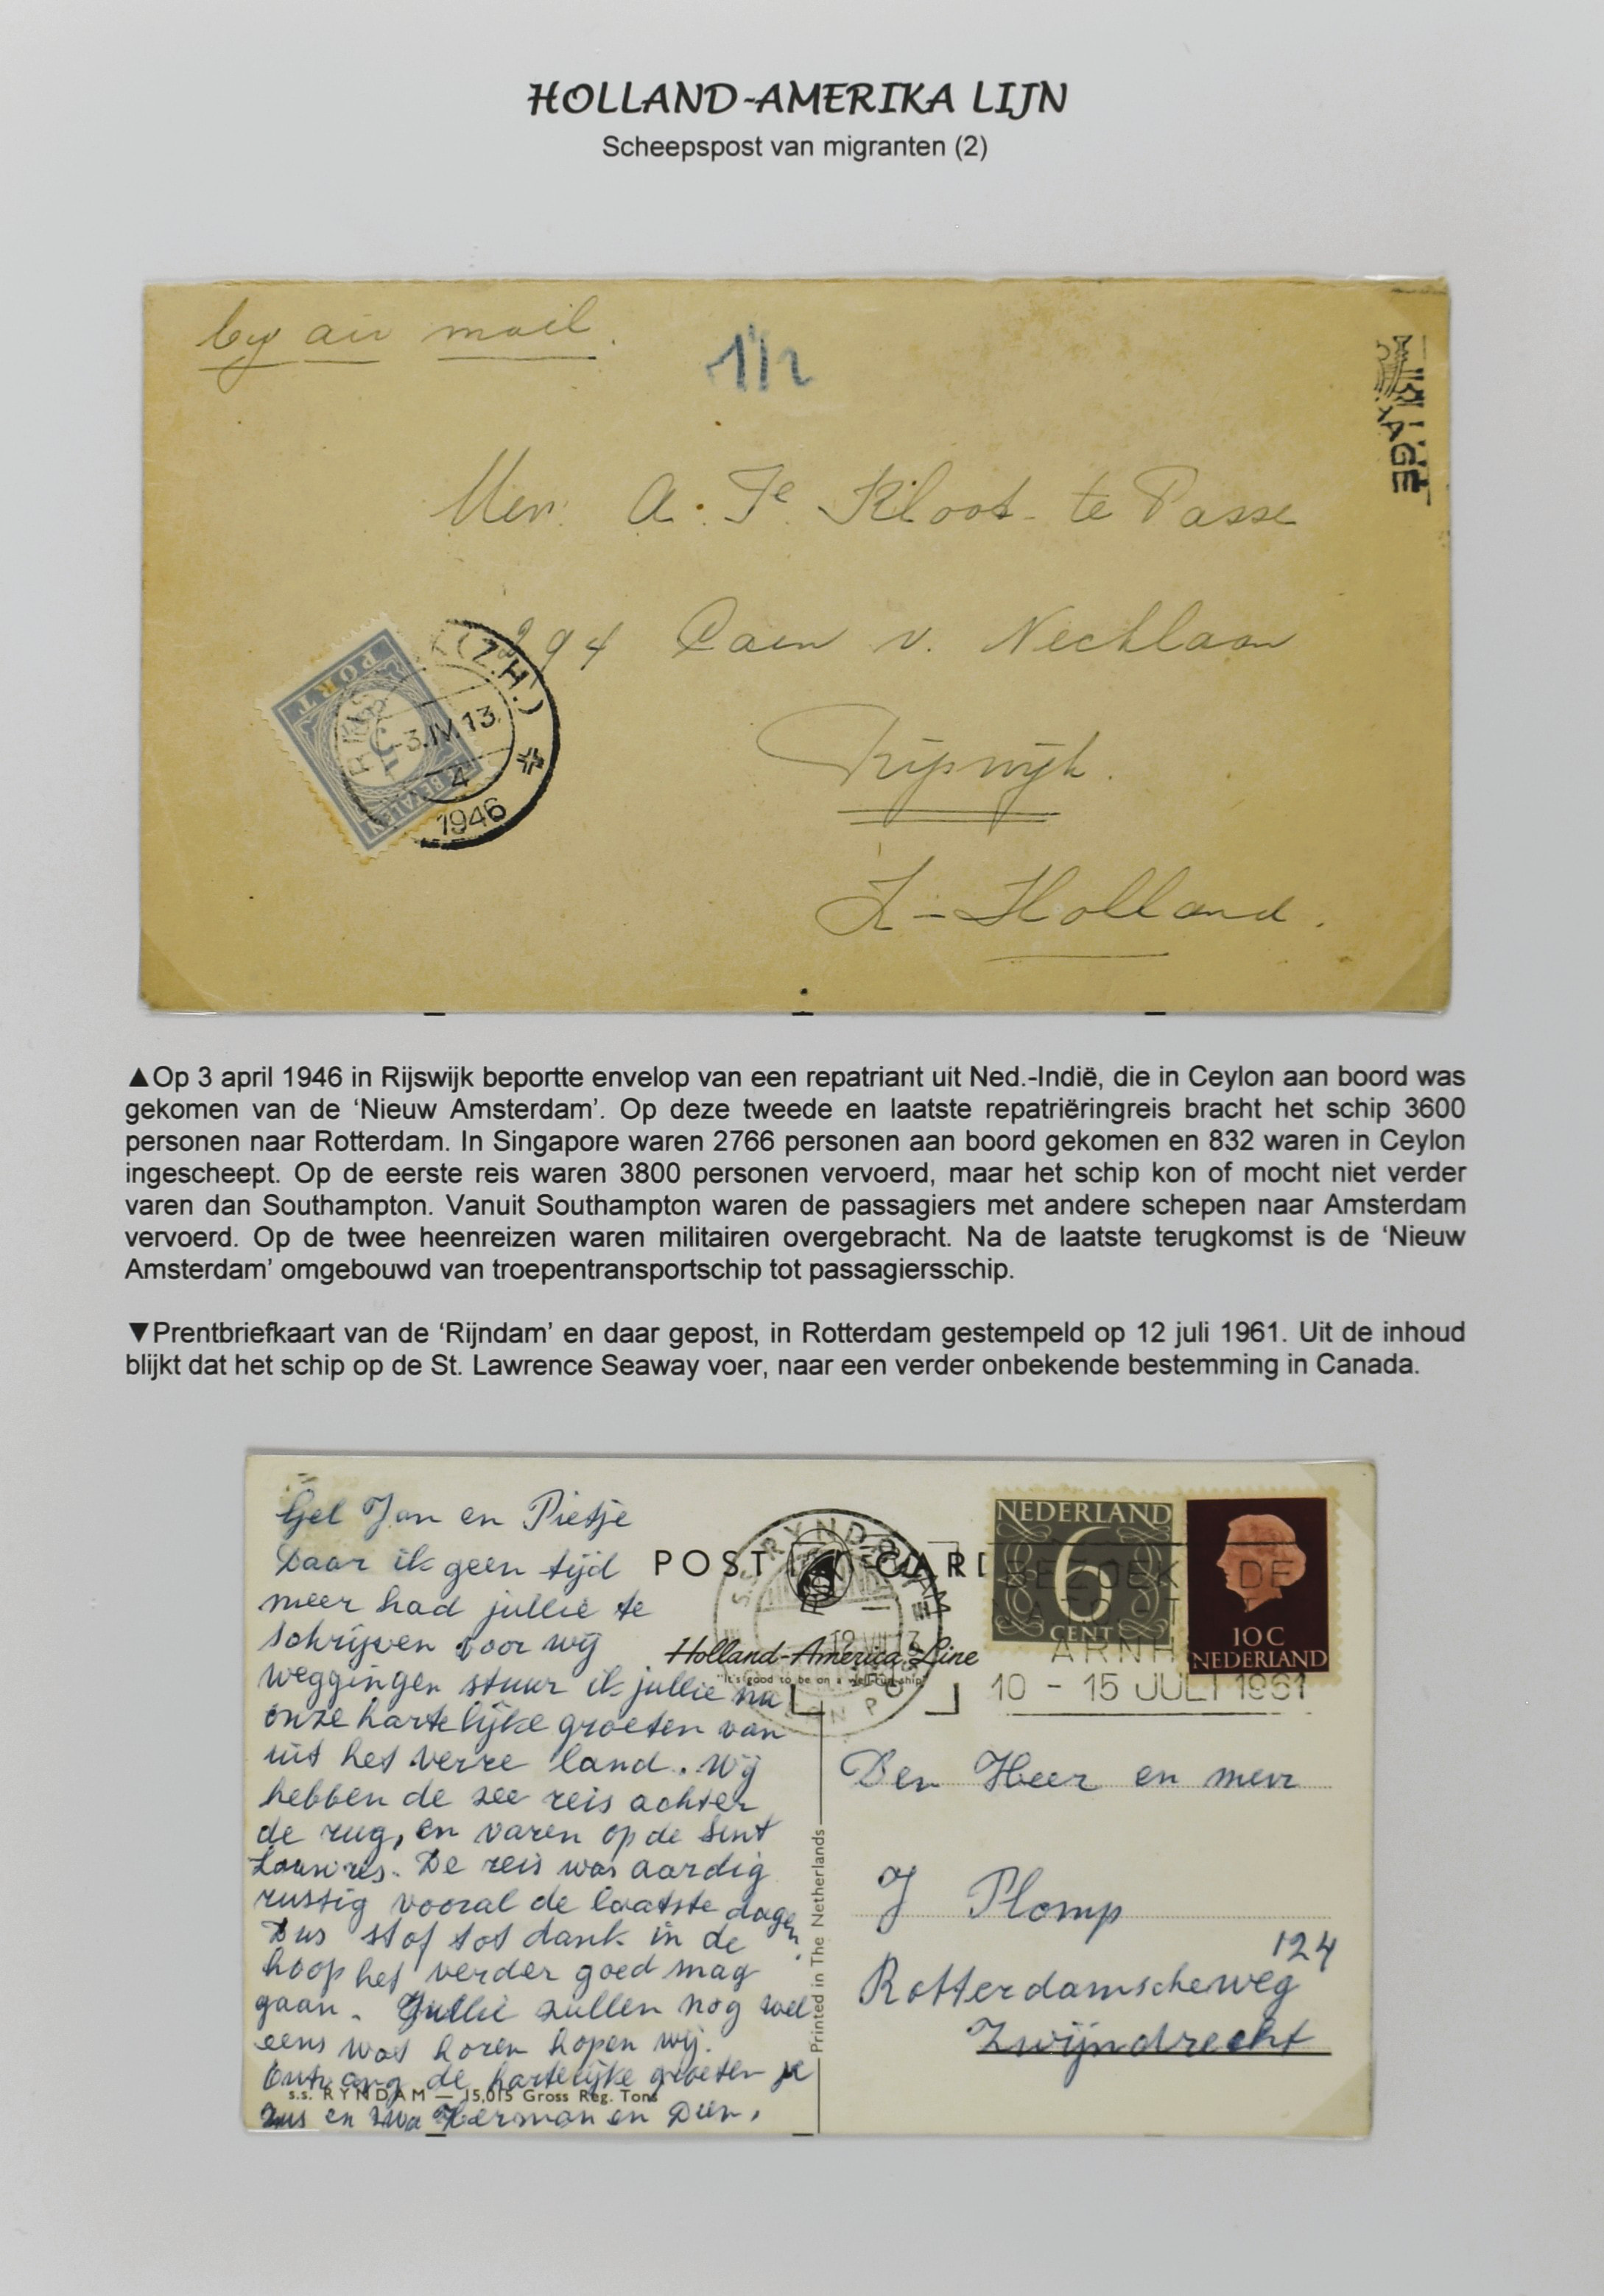 HOLLAND-AMERIKA LIJN
Scheepspost van migranten (2)
by air mail.
1½
AGE
Mevr. A. Fe Kloot- te Passe
294 Caen v. Necklaan
Rijswijk.
Z-Holland.
PORT
TE BETALEN
(Z.H.)
-3.IV.13
4
1946
▲Op 3 april 1946 in Rijswijk beportte envelop van een repatriant uit Ned.-Indië, die in Ceylon aan boord was
gekomen van de ‘Nieuw Amsterdam’. Op deze tweede en laatste repatriëringreis bracht het schip 3600
personen naar Rotterdam. In Singapore waren 2766 personen aan boord gekomen en 832 waren in Ceylon
ingescheept. Op de eerste reis waren 3800 personen vervoerd, maar het schip kon of mocht niet verder
varen dan Southampton. Vanuit Southampton waren de passagiers met andere schepen naar Amsterdam
vervoerd. Op de twee heenreizen waren militairen overgebracht. Na de laatste terugkomst is de ‘Nieuw
Amsterdam’ omgebouwd van troepentransportschip tot passagiersschip.
▼Prentbriefkaart van de ‘Rijndam’ en daar gepost, in Rotterdam gestempeld op 12 juli 1961. Uit de inhoud
blijkt dat het schip op de St. Lawrence Seaway voer, naar een verder onbekende bestemming in Canada.
Gel Jan en Pietje
Daar ik geen tijd
meer had jullie te
schrijven voor wij
weggingen stuur ik jullie nu
onze hartelijke groeten van
uit het verre land. Wij
hebben de zee reis achter
de rug, en varen op de Sint
Lauwres. De reis was aardig
rustig vooral de laatste dagen.
Dus stof tot dank in de
hoop het verder goed mag
gaan. Jullie zullen nog wel
eens wat horen hopen wij.
Ontvang de hartelijke groeten je
Zus en Zwa Herman en Dien.
s.s. RYNDAM — 15,015 Gross Reg. Tons
POST CARD
Holland-America Line
"It's good to be on a well-run ship"
S.S. RYNDAM
12 VII 13
Printed in The Netherlands
NEDERLAND
6
CENT
10 C
NEDERLAND
BEZOEK DE
ARNH
10 - 15 JULI 1961
Den Heer en mevr
J Plomp
Rotterdamscheweg 124
Zwijndrecht